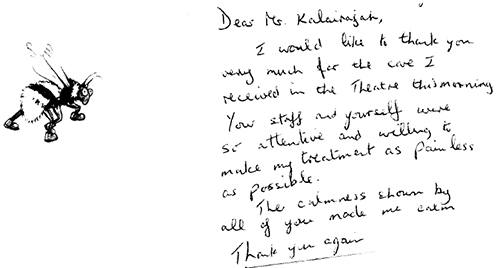 Dear Mr. Kalairajah,
I would like to thank you
very much for the care I
received in the Theatre this morning
Your staff and yourself were
so attentive and willing to
make my treatment as painless
as possible.
The calmness shown by
all of you made me calm
Thank you again